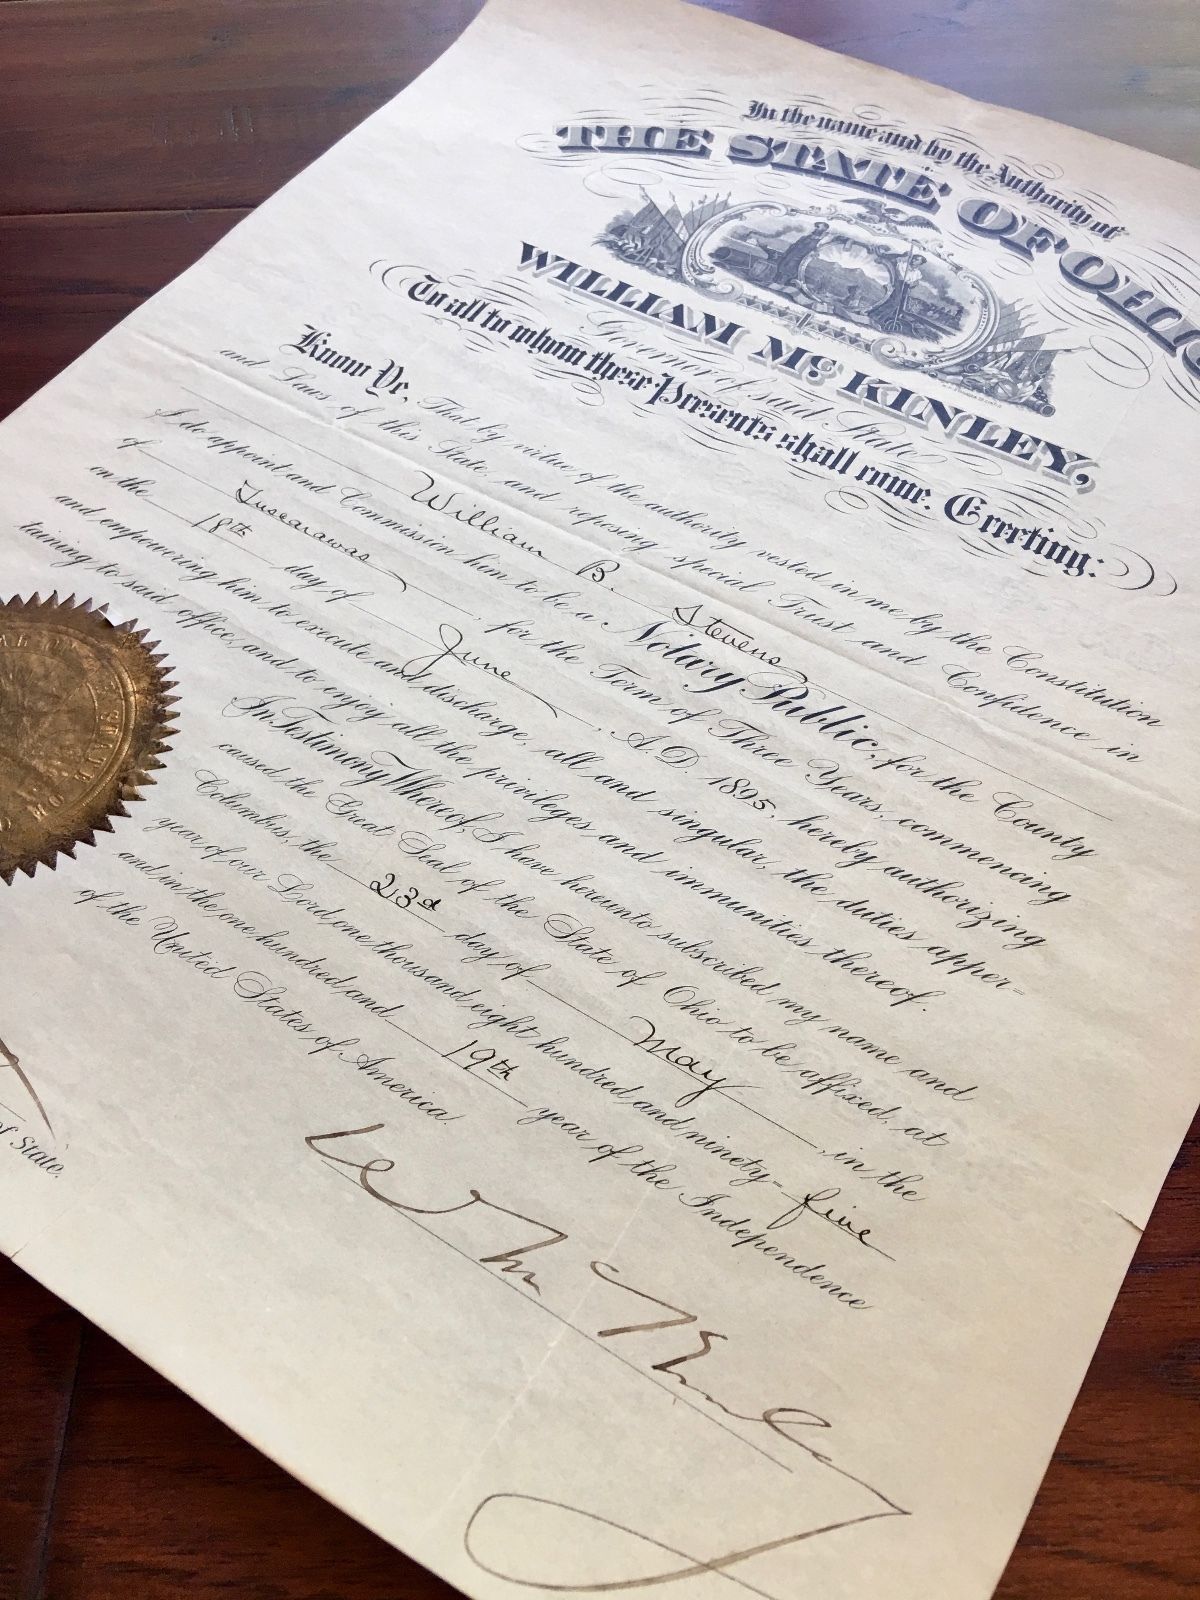 In the name and by the Authority of
THE STATE OF OHIO
WILLIAM McKINLEY,
Governor of said State
To all to whom these Presents shall come. Greeting:
Know Ye, That by virtue of the authority vested in me by the Constitution
and Laws of this State, and reposing special Trust and Confidence in
William B. Stevens
I do appoint and Commission him to be a Notary Public, for the County
of Tuscarawas, for the Term of Three Years, commencing
on the 18th day of June, A.D. 1895, hereby authorizing
and empowering him to execute and discharge, all and singular, the duties apper=
taining to said office, and to enjoy all the privileges and immunities thereof.
In Testimony Whereof, I have hereunto subscribed my name and
caused the Great Seal of the State of Ohio to be affixed, at
Columbus, the 23d day of May, in the
year of our Lord one thousand eight hundred and ninety=five
and in the one hundred and 19th year of the Independence
of the United States of America.
Wm McKinley
of State.